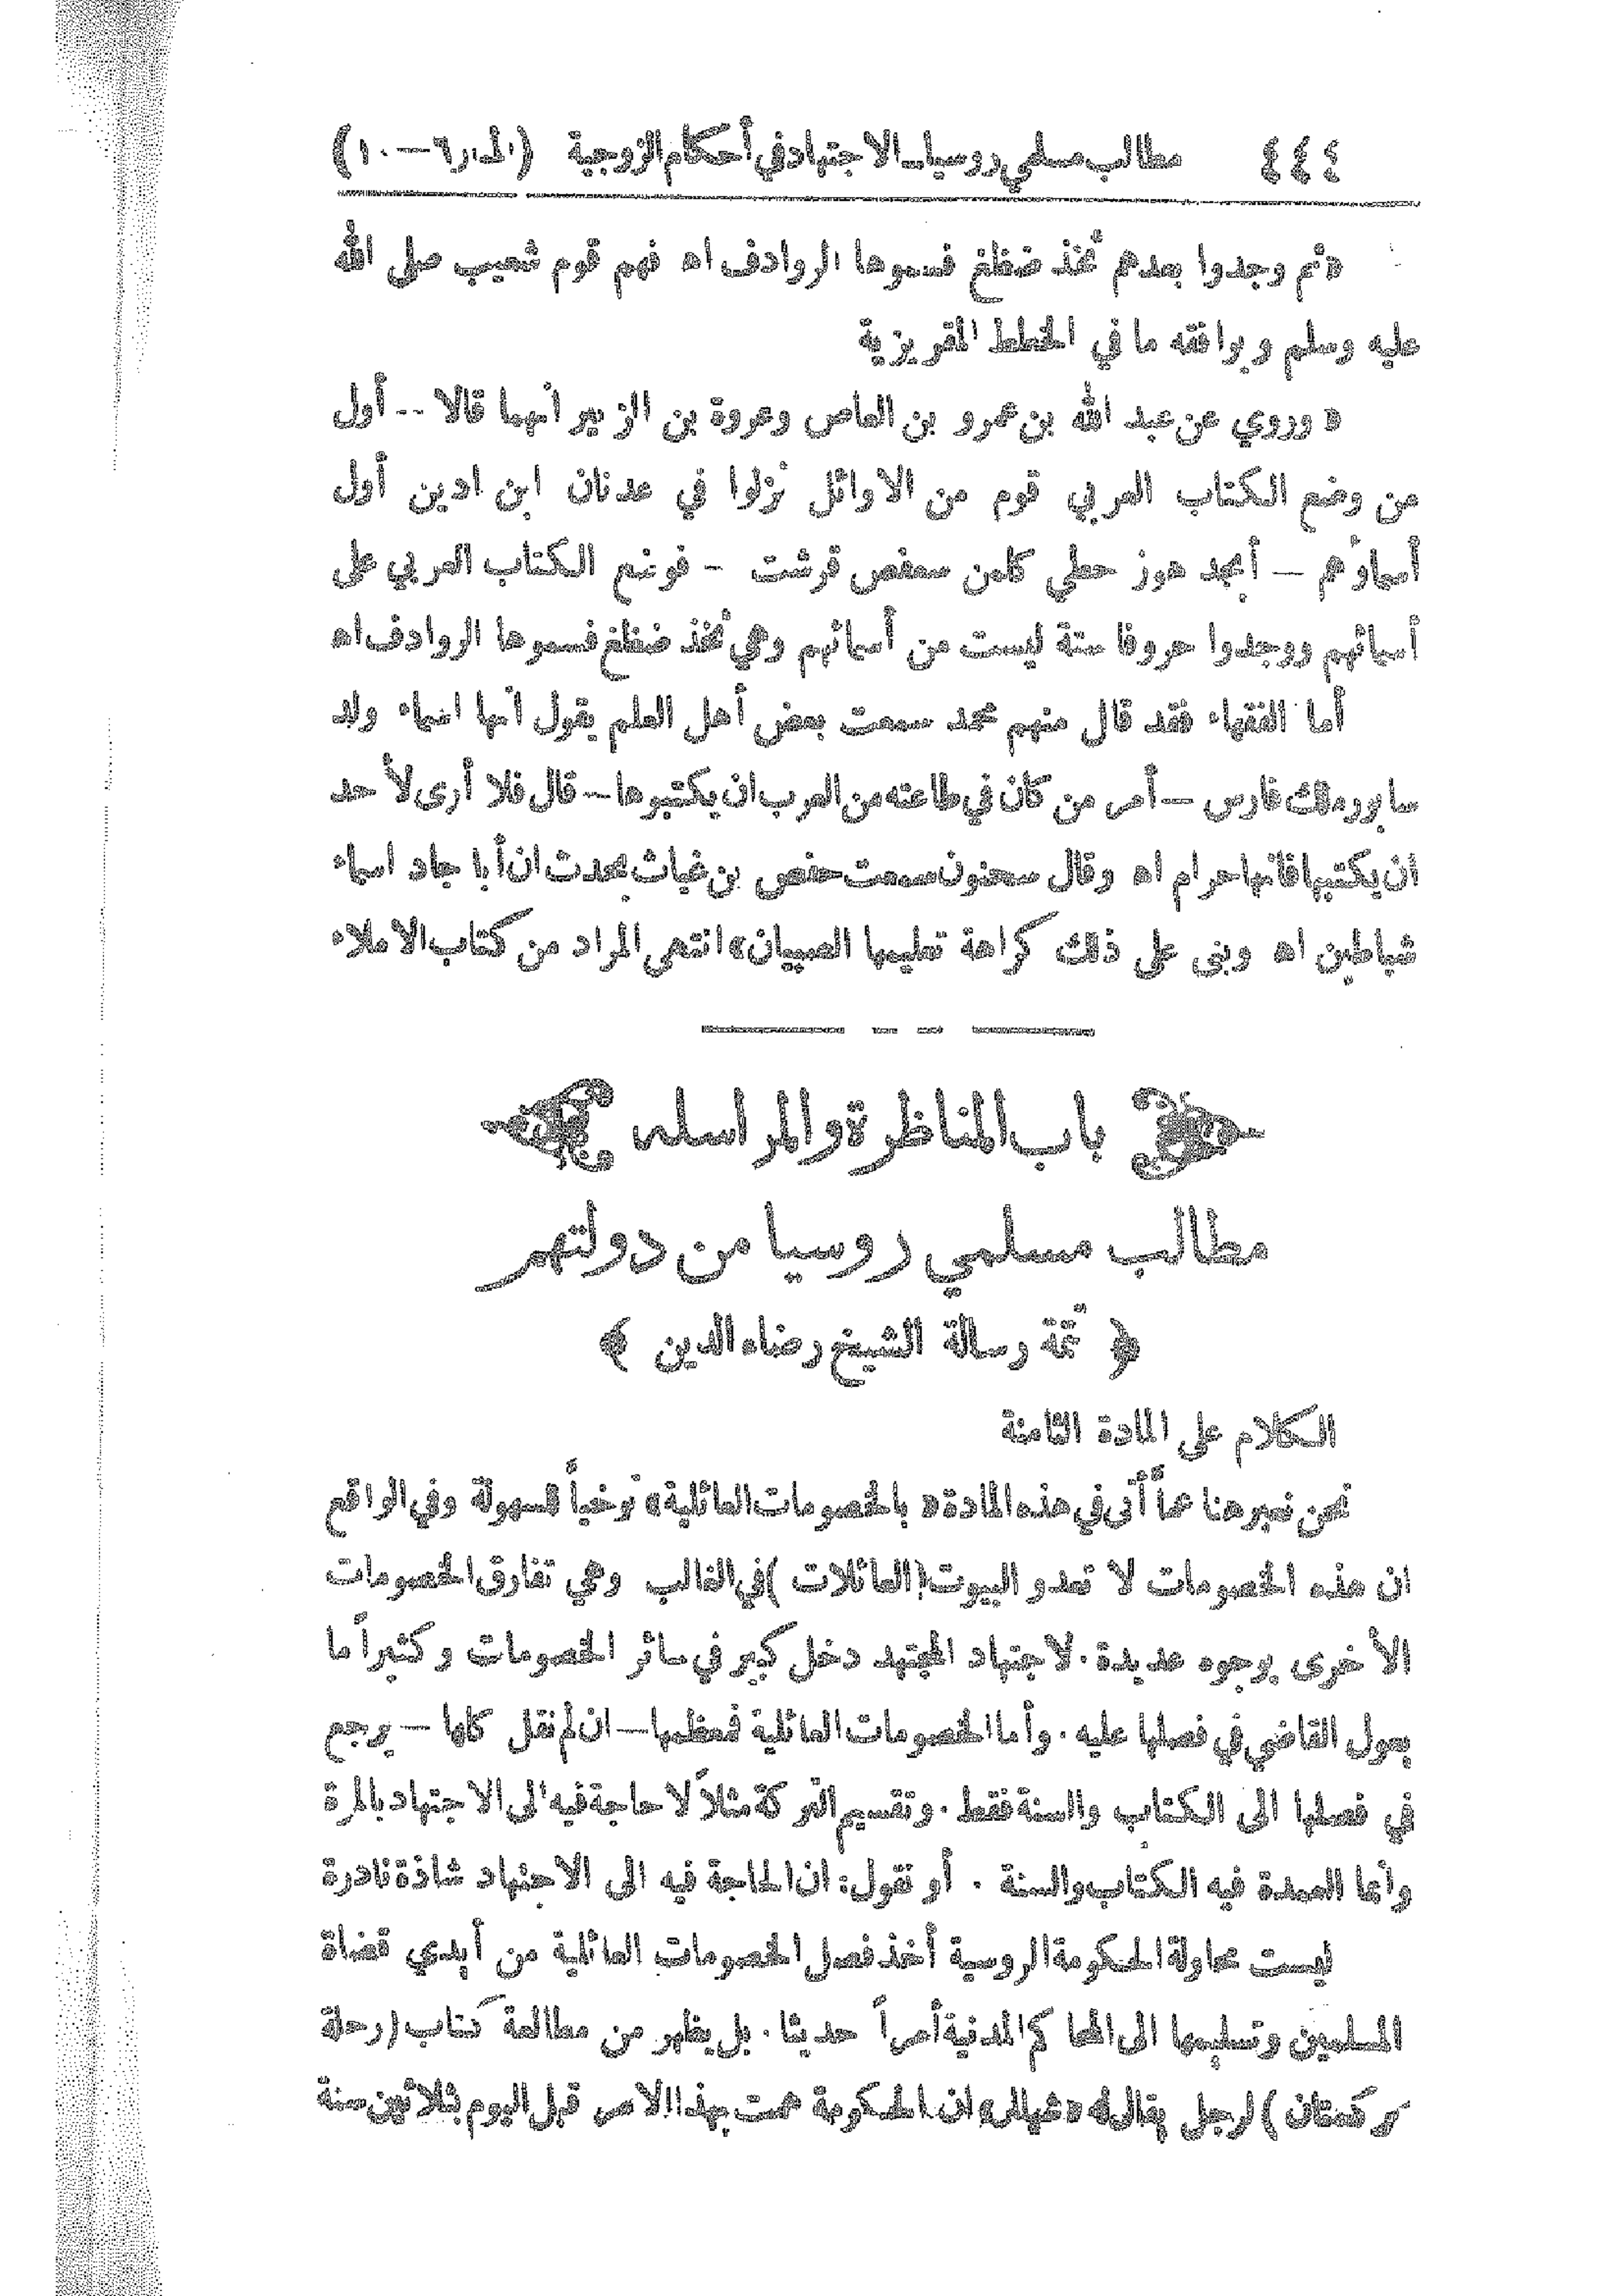 ٤٤٤ مطالب مسلمي روسيا_ الاجتهاد في أحكام الزوجية (المنار ٦ — ١٠)
«ثم وجدوا بعدهم ثخذ ضظغ فسموها الروادف اه فهم قوم شعيب صلى الله
عليه وسلم ويوافقه ما في الخطط المقريزية
« وروي عن عبد الله بن عمرو بن العاص وعروة بن الزبير انهما قالا -- أول
من وضع الكتاب العربي قوم من الاوائل نزلوا في عدنان ابن ادبن أول
أسماؤهم — أبجد هوز حطي كلمن سعفص قرشت - فوضع الكتاب العربي على
أسمائهم ووجدوا حروفا ستة ليست من أسمائهم وهي ثخذ ضظغ فسموها الروادف اه
أما الفقهاء فقد قال منهم محمد سمعت بعض أهل العلم يقول انها اسماء ولد
سابور ملك فارس — أمر من كان في طاعته من العرب ان يكتبوها — قال فلا أرى لأحد
ان يكتبها فانها حرام اه وقال سحنون سمعت حفص بن غياث يحدث ان أبا جاد اسماء
شياطين اه وبنى على ذلك كراهة تعليمها الصبيان» انتهى المراد من كتاب الاملاء
باب المناظرة والمراسلة
مطالب مسلمي روسيا من دولتهم
﴿ تتمة رسالة الشيخ رضاء الدين ﴾
الكلام على المادة الثامنة
نحن نعبر هنا عما أتى في هذه المادة « بالخصومات العائلية» توخياً للسهولة وفي الواقع
ان هذه الخصومات لا تعدو البيوت (العائلات ) في الغالب وهي تفارق الخصومات
الأخرى بوجوه عديدة. لاجتهاد المجتهد دخل كبير في سائر الخصومات وكثيراً ما
يعول القاضي في فصلها عليه. وأما الخصومات العائلية فمعظمها — ان لم نقل كلها — يرجع
في فصلها الى الكتاب والسنة فقط. وتقسيم التركة مثلاً لا حاجة فيه الى الاجتهاد بالمرة
وانما العمدة فيه الكتاب والسنة . أو نقول: ان الحاجة فيه الى الاجتهاد شاذة نادرة
ليست محاولة الحكومة الروسية أخذ فصل الخصومات العائلية من أيدي قضاة
المسلمين وتسليمها الى المحاكم المدنية أمراً حديثا. بل يظهر من مطالعة كتاب (رحلة
تركستان ) لرجل يقال له ان الحكومة همت بهذا الامر قبل اليوم بثلاثين سنة